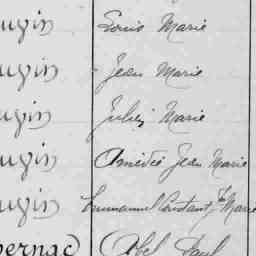 ugin Louis Marie
ugin Jean Marie
ugin Julien Marie
ugin Amédée Jean Marie
ugin Emmanuel Constant Marie
pernac Abel Paul